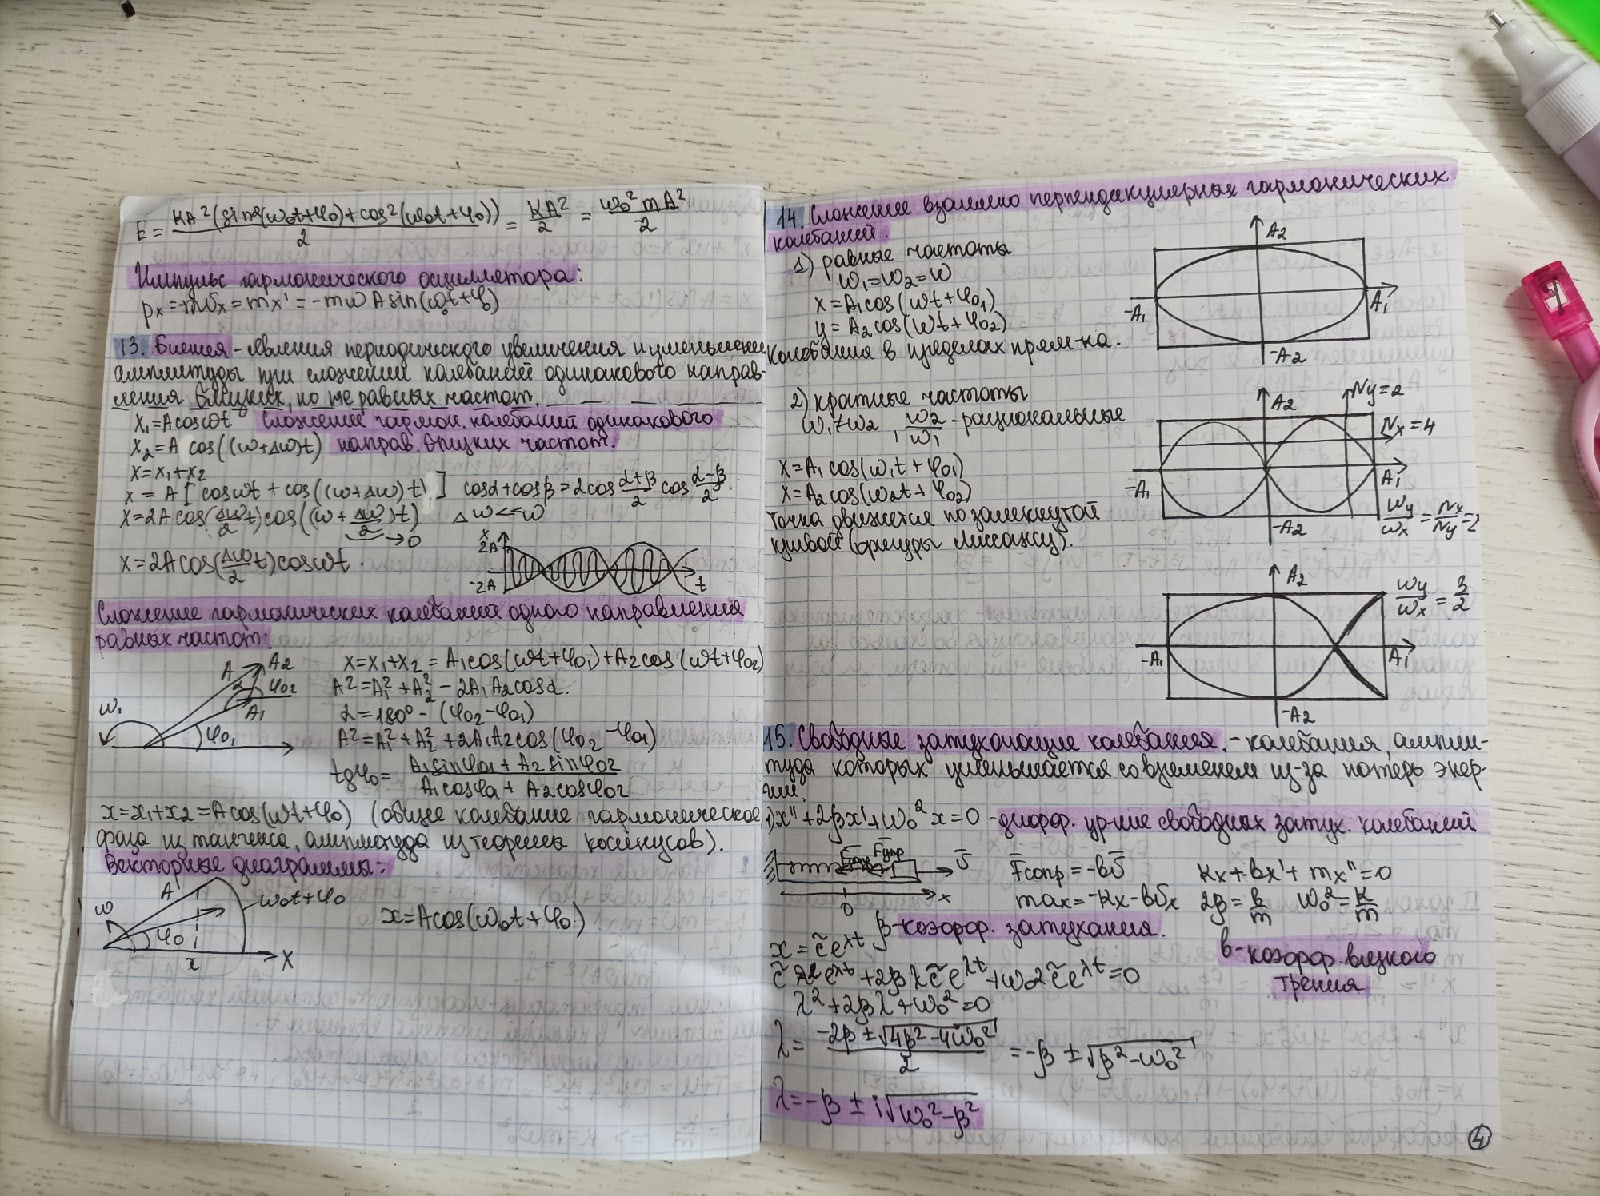 E = kA²(sin²(ω₀t+φ₀)+cos²(ω₀t+φ₀))/2 = kA²/2 = ω₀²mA²/2
Импульс гармонического осциллятора:
pₓ = mυₓ = mx' = -mωA sin(ω₀t+φ₀)
13. Биения - явления периодического увеличения и уменьшения
амплитуды при сложении колебаний одинакового направ-
ления близких, но не равных частот.
x₁ = A cosωt Сложение гармон. колебаний одинакового
x₂ = A cos((ω+Δω)t) направ. близких частот.
x = x₁+x₂
x = A[cosωt + cos((ω+Δω)t)] cosα+cosβ = 2cos (α+β)/2 cos (α-β)/2
x = 2A cos(Δω/2 t) cos((ω + Δω/2)t) Δω<<ω
→0
x = 2A cos(Δω/2 t) cosωt
x
2A
-2A
t
Сложение гармонических колебаний одного направления
равных частот:
A A₂
α φ₀₂
A₁
ω₀
φ₀₁
x = x₁+x₂ = A₁cos(ωt+φ₀₁)+A₂cos(ωt+φ₀₂)
A² = A₁²+A₂² - 2A₁A₂cosα.
α = 180° - (φ₀₂-φ₀₁)
A² = A₁²+A₂² + 2A₁A₂cos(φ₀₂-φ₀₁)
tgφ₀ = (A₁sinφ₀₁ + A₂sinφ₀₂)/(A₁cosφ₀₁ + A₂cosφ₀₂)
x = x₁+x₂ = A cos(ωt+φ₀) (общее колебание гармоническое
фаза из тангенса, амплитуда из теоремы косинусов).
Векторные диаграммы:
A
ω
ω₀t+φ₀
φ₀
x
X
x = A cos(ω₀t+φ₀)
14. Сложение взаимно перпендикулярных гармонических
колебаний.
1) равные частоты
ω₁=ω₂=ω
x = A₁cos(ωt+φ₀₁)
y = A₂cos(ωt+φ₀₂)
Колебания в пределах прям-ка.
A₂
-A₁
A₁
-A₂
2) кратные частоты
ω₁≠ω₂, ω₂/ω₁ - рациональные
x = A₁cos(ω₁t+φ₀₁)
x = A₂cos(ω₂t+φ₀₂)
точка движется по замкнутой
кривой (фигуры Лиссажу).
A₂
Ny=2
Nx=4
-A₁
A₁
-A₂
ωy/ωx = Nx/Ny = 2
A₂
ωy/ωx = 3/2
-A₁
A₁
-A₂
15. Свободные затухающие колебания. - колебания, ампли-
туда которых уменьшается со временем из-за потерь энер-
гии.
1) x''+2βx'+ω₀²x=0 - диффер. ур-ние свободных затух. колебаний
Fсопр Fупр
ῡ
0
x
F̄сопр = -bῡ kx+bx'+mx''=0
maₓ = -kx-bυₓ 2β = b/m ω₀² = k/m
β-коэффф. затухания.
x = c̃e^λt
b-коэффф. вязкого
трения
c̃λ²e^λt + 2βλc̃e^λt + ω₀²c̃e^λt = 0
λ²+2βλ+ω₀²=0
λ = (-2β ± √(4β²-4ω₀²))/2 = -β ± √(β²-ω₀²)
λ = -β ± i√(ω₀²-β²)
4